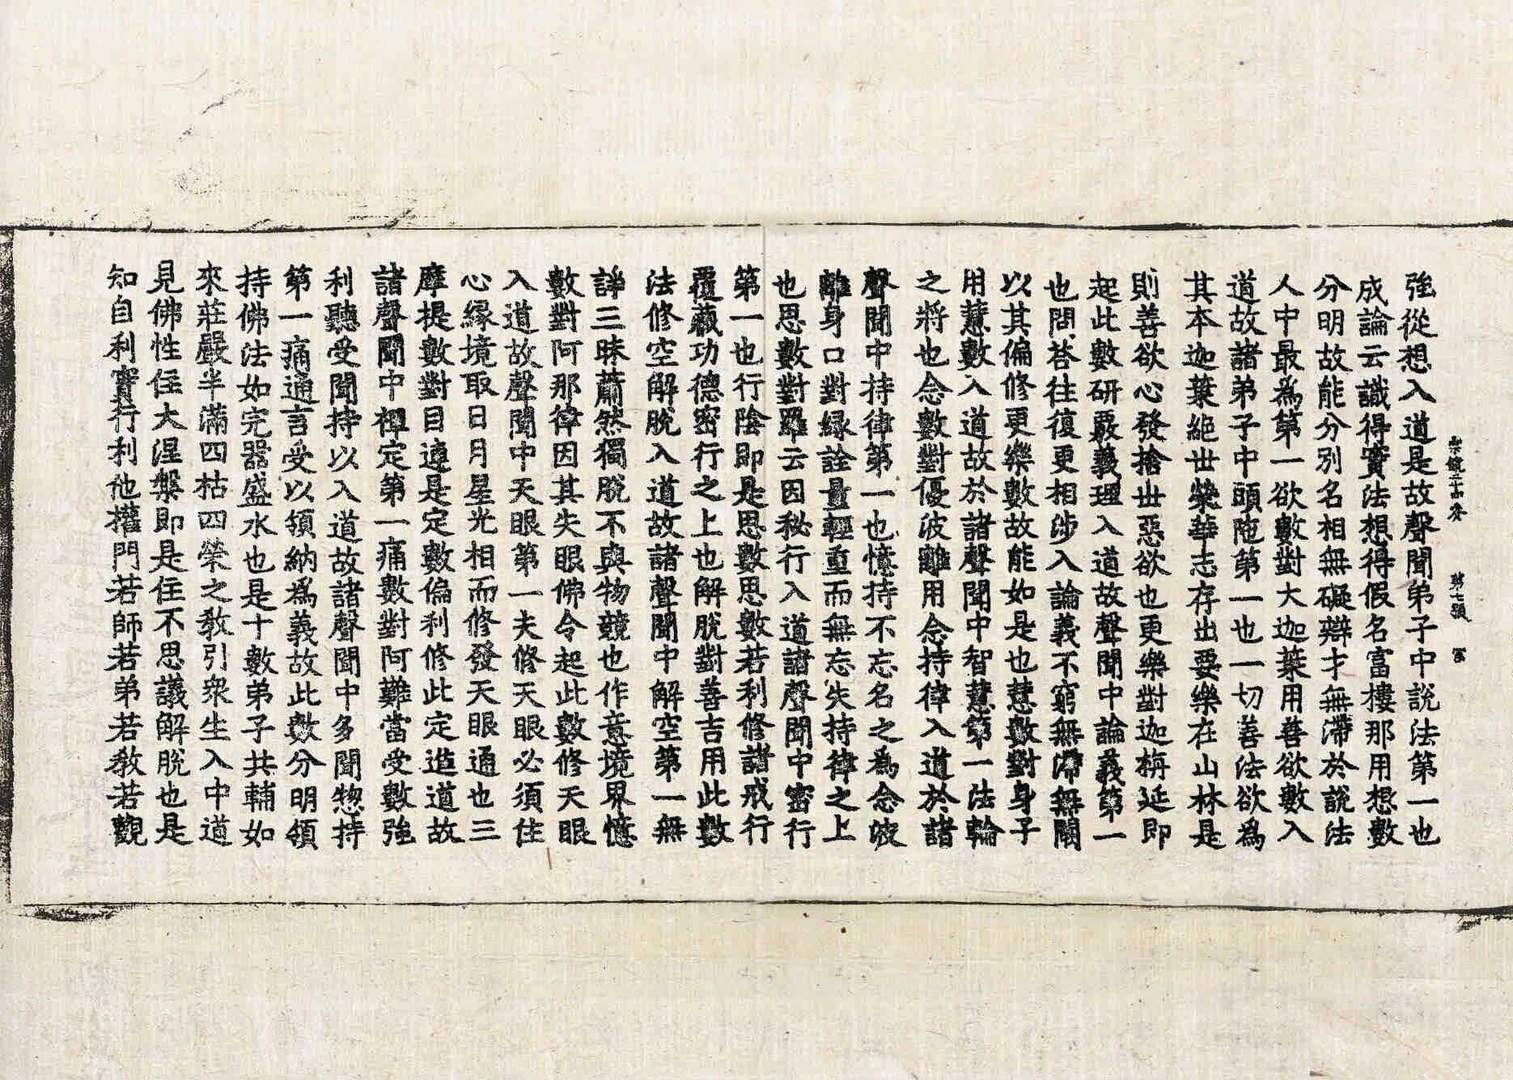 強從想入道是故聲聞弟子中說法第一也
宗鏡三十四卷 第七張 富
成論云識得實法想得假名富樓那用想數
分明故能分別名相無礙辯才無滯於說法
人中最為第一欲數對大迦葉用善欲數入
道故諸弟子中頭陁第一也一切善法欲為
其本迦葉絕世榮華志存出要樂在山林是
則善欲心發捨世惡欲也更樂對迦旃延即
起此數研覈義理入道故聲聞中論義第一
也問荅往復更相涉入論義不窮無滯無閡
以其偏修更樂數故能如是也慧數對身子
用慧數入道故於諸聲聞中智慧第一法輪
之將也念數對優波離用念持律入道於諸
聲聞中持律第一也憶持不忘名之為念波
離身口對緣詮量輕重而無忘失持律之上
也思數對羅云因秘行入道諸聲聞中密行
第一也行陰即是思數思數若利修諸戒行
覆藏功德密行之上也解脫對善吉用此數
法修空解脫入道故諸聲聞中解空第一無
諍三昧蕭然獨脫不與物競也作意境界憶
數對阿那律因其失眼佛令起此數修天眼
入道故聲聞中天眼第一夫修天眼必須住
心緣境取日月星光相而修發天眼通也三
摩提數對目連是定數偏利修此定進道故
諸聲聞中禪定第一痛數對阿難當受數強
利聽受聞持以入道故諸聲聞中多聞惣持
第一痛通言受以領納為義故此數分明領
持佛法如完器盛水也是十數弟子共輔如
來莊嚴半滿四枯四榮之教引衆生入中道
見佛性住大涅槃即是住不思議解脫也是
知自利實行利他權門若師若弟若教若觀